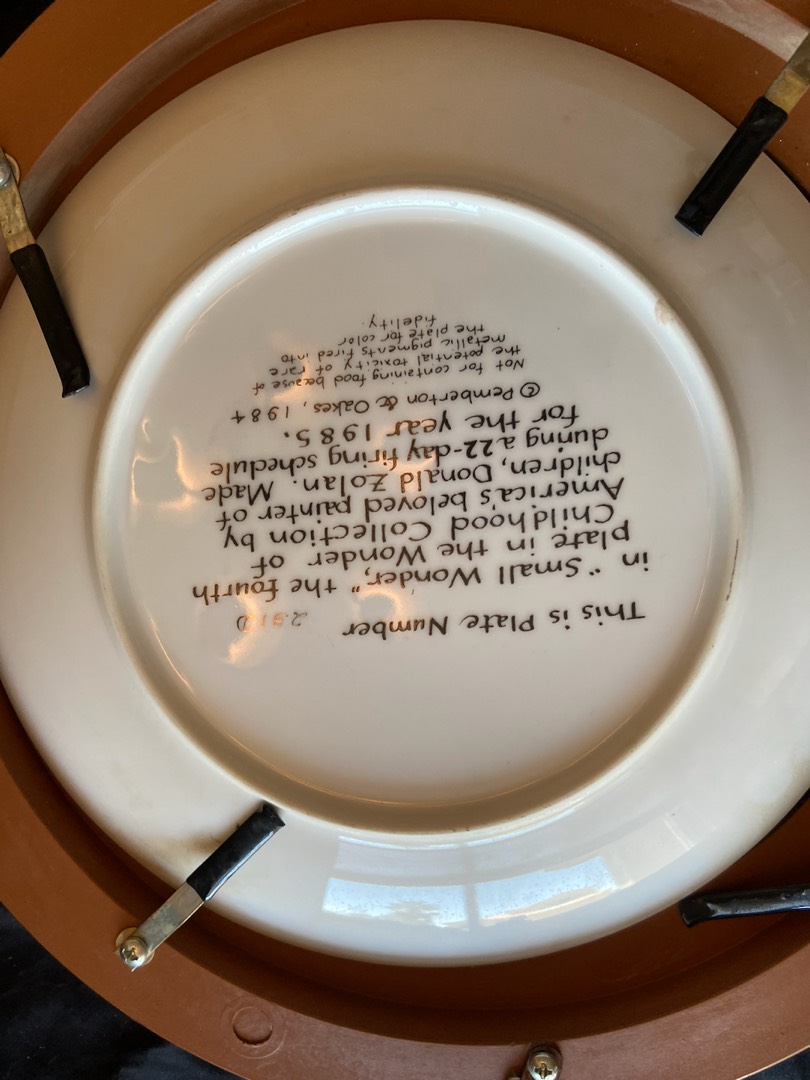 This is Plate Number
in "Small Wonder," the fourth
plate in the Wonder of
Childhood Collection by
America's beloved painter of
children, Donald Zolan. Made
during a 22-day firing schedule
for the year 1985.
© Pemberton & Oakes, 1984
Not for containing food because of
the potential toxicity of rare
metallic pigments fired into
the plate for color
fidelity.